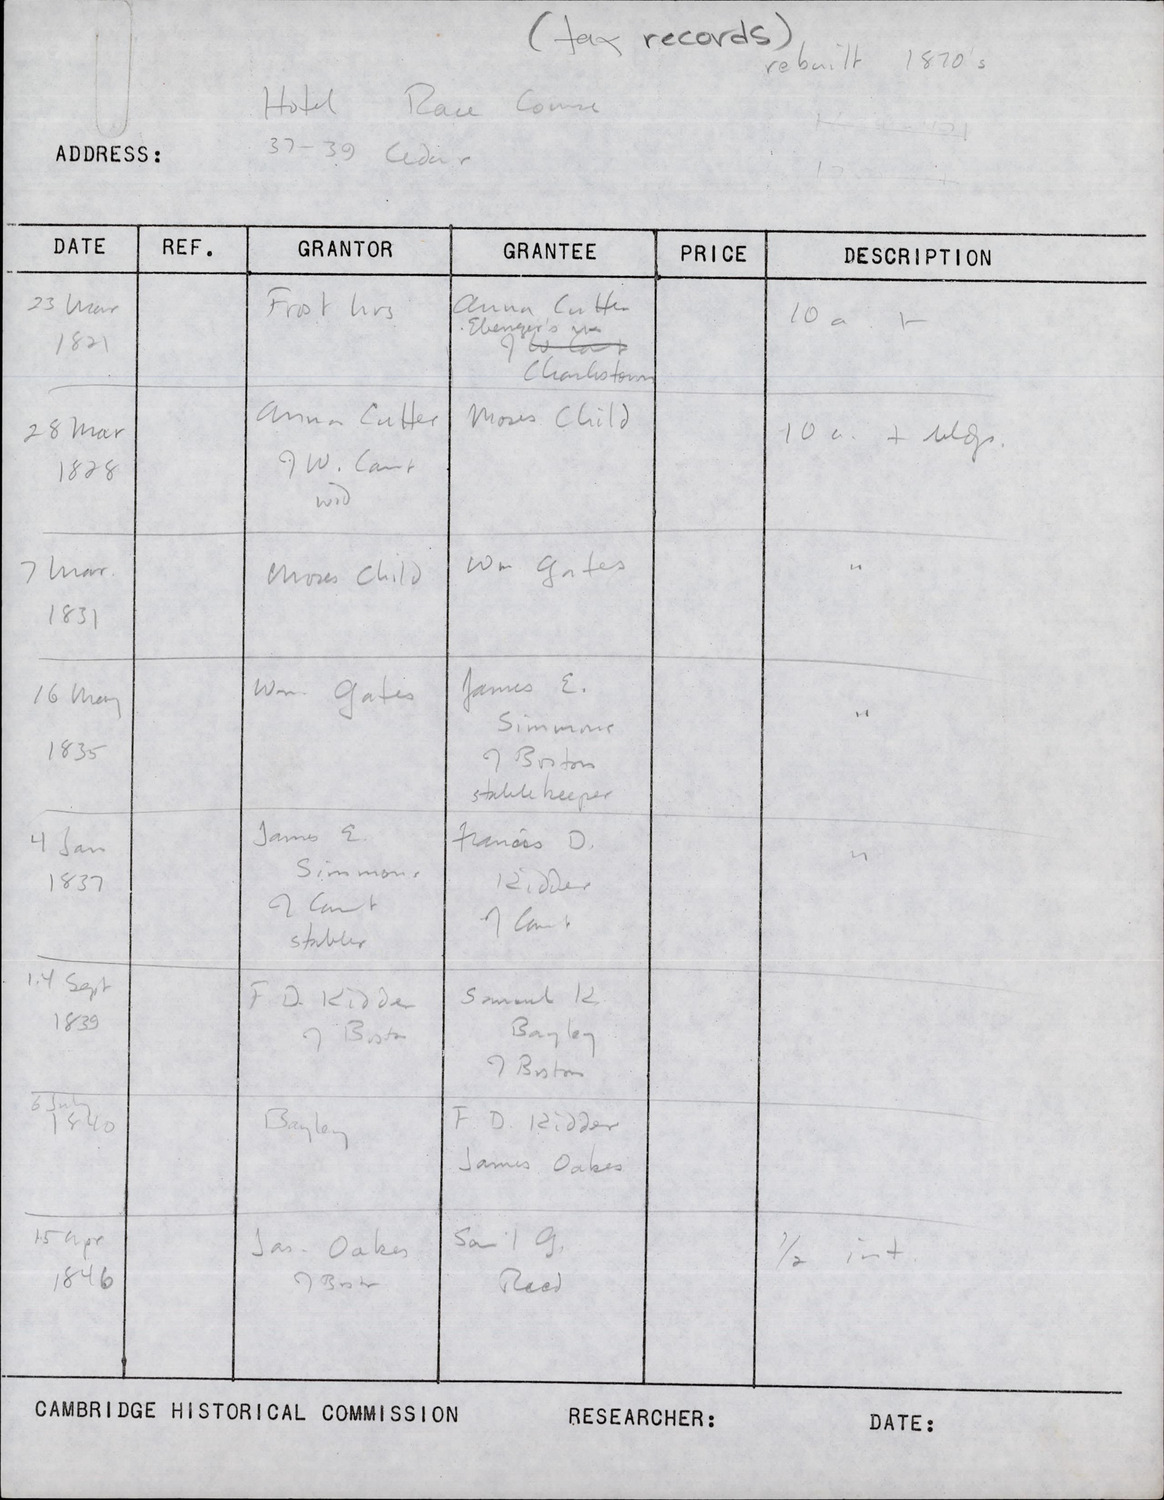 (tax records)
rebuilt 1870's
Hotel Race Course
ADDRESS: 37-39 Cedar
DATE REF. GRANTOR GRANTEE PRICE DESCRIPTION
23 Mar Frost hrs Anna Cutter 10 a
1821 Ebenezer's
of W. Camb
Charlestown
28 Mar Anna Cutter Moses Child 10 a. + bldgs.
1828 of W. Camb
wid
7 Mar. Moses Child Wm Gates "
1831
16 May Wm. Gates James E. "
1835 Simmons
of Boston
stablekeeper
4 Jan James E. Francis D. "
1837 Simmons Kidder
of Camb of Camb
stabler
14 Sept F. D. Kidder Samuel K.
1839 of Boston Bayley
of Boston
6 July
1840 Bayley F. D. Kidder
James Oakes
15 Apr Jas. Oakes Sam'l G. 1/2 int.
1846 of Boston Reed
CAMBRIDGE HISTORICAL COMMISSION RESEARCHER: DATE: